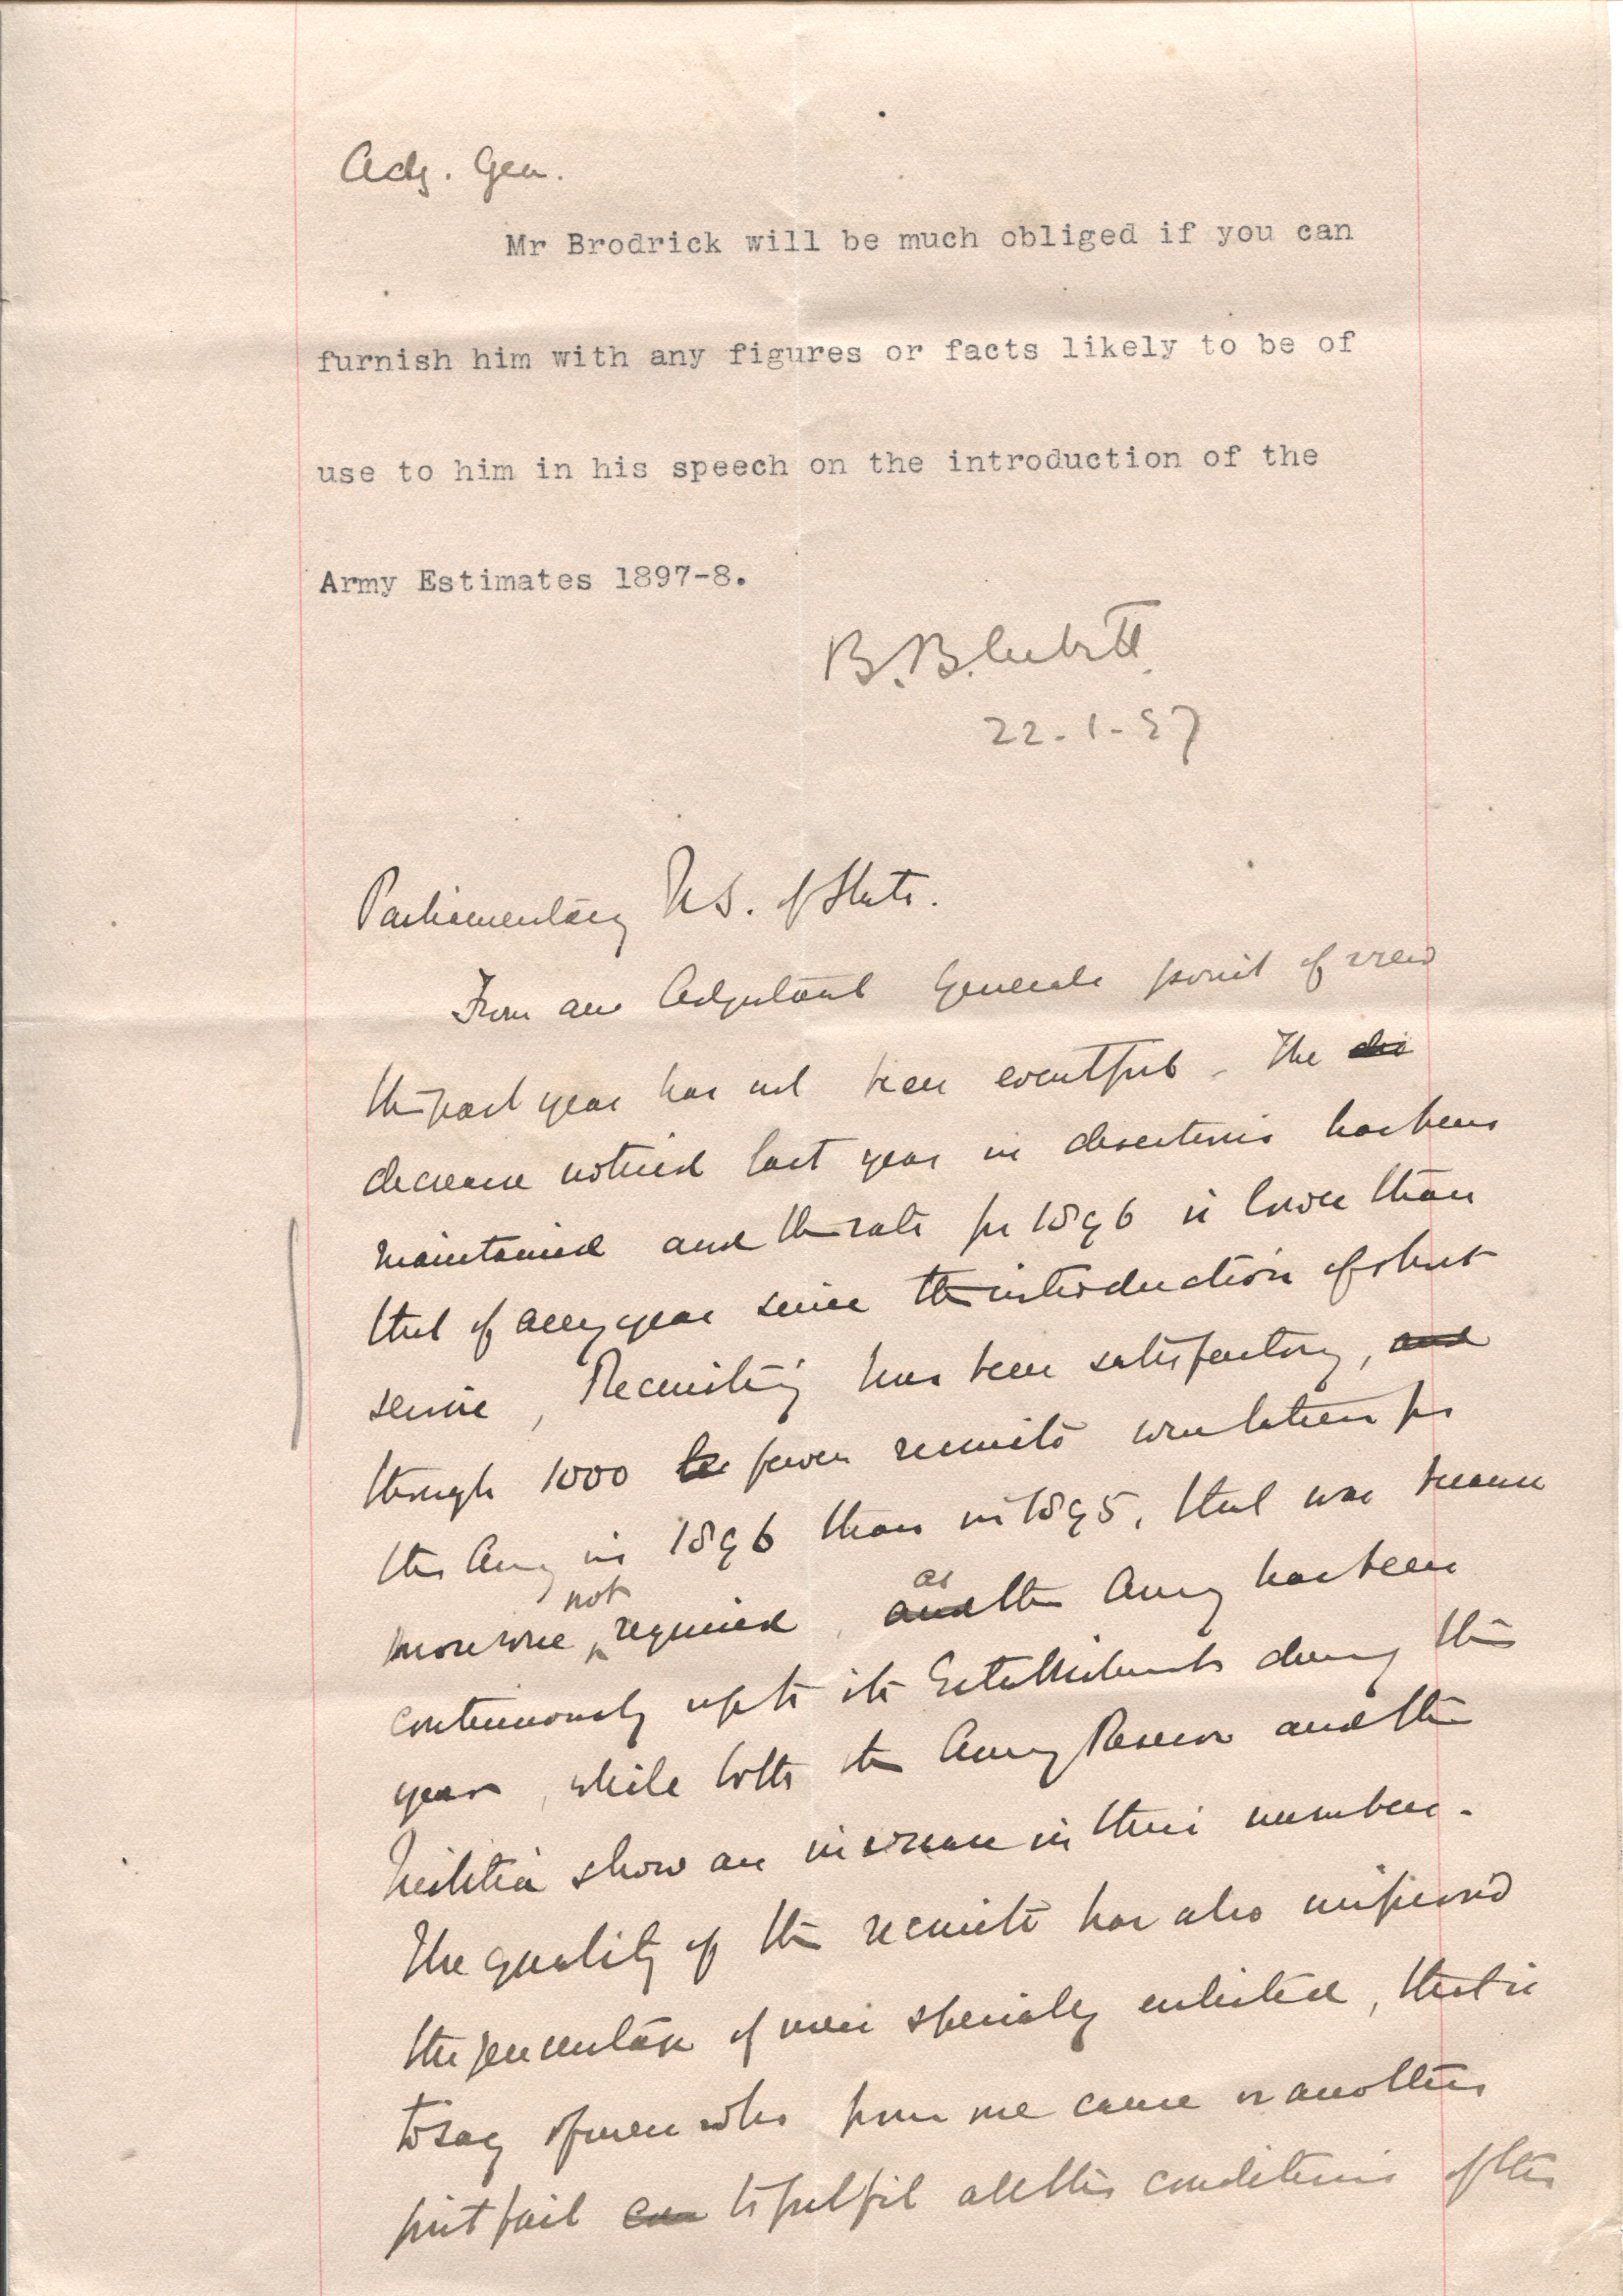 Adj. Gen.
Mr Brodrick will be much obliged if you can
furnish him with any figures or facts likely to be of
use to him in his speech on the introduction of the
Army Estimates 1897-8.
B. B. Cubitt
22-1-97
Parliamentary U.S. of State.
From an Adjutant Generals point of view
the past year has not been eventful. The
decrease noticed last year in desertions has been
maintained and the rate for 1896 is lower than
that of any year since the introduction of short
service, Recruiting has been satisfactory, and
though 1000 fewer recruits were taken for
the Army in 1896 than in 1895, that was because
not as
more were required, and the Army has been
continuously up to its Establishments during the
year, while both the Army Reserve and the
Militia show an increase in their numbers.
The quality of the recruits has also improved
the percentage of men specially enlisted, that is
to say of men who from one cause or another
just fail to fulfil all the conditions of the